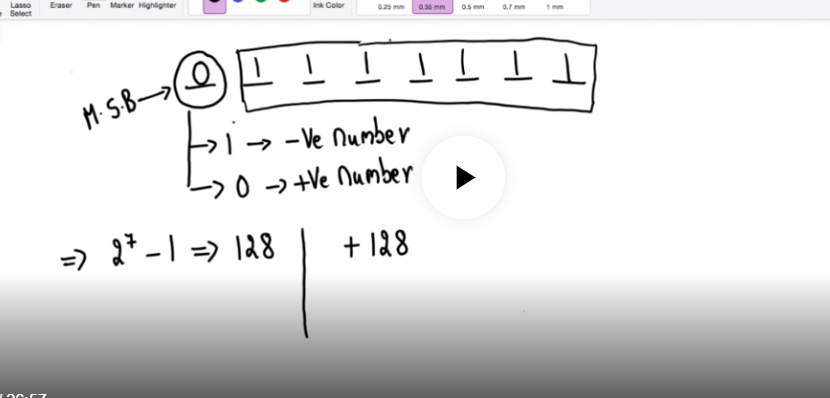 Lasso Select Eraser Pen Marker Highlighter Ink Color 0.25 mm 0.35 mm 0.5 mm 0.7 mm 1 mm
M.S.B → 0 1 1 1 1 1 1 1
→ 1 → -ve number
→ 0 → +ve number
⇒ 2⁷ - 1 ⇒ 128 | + 128